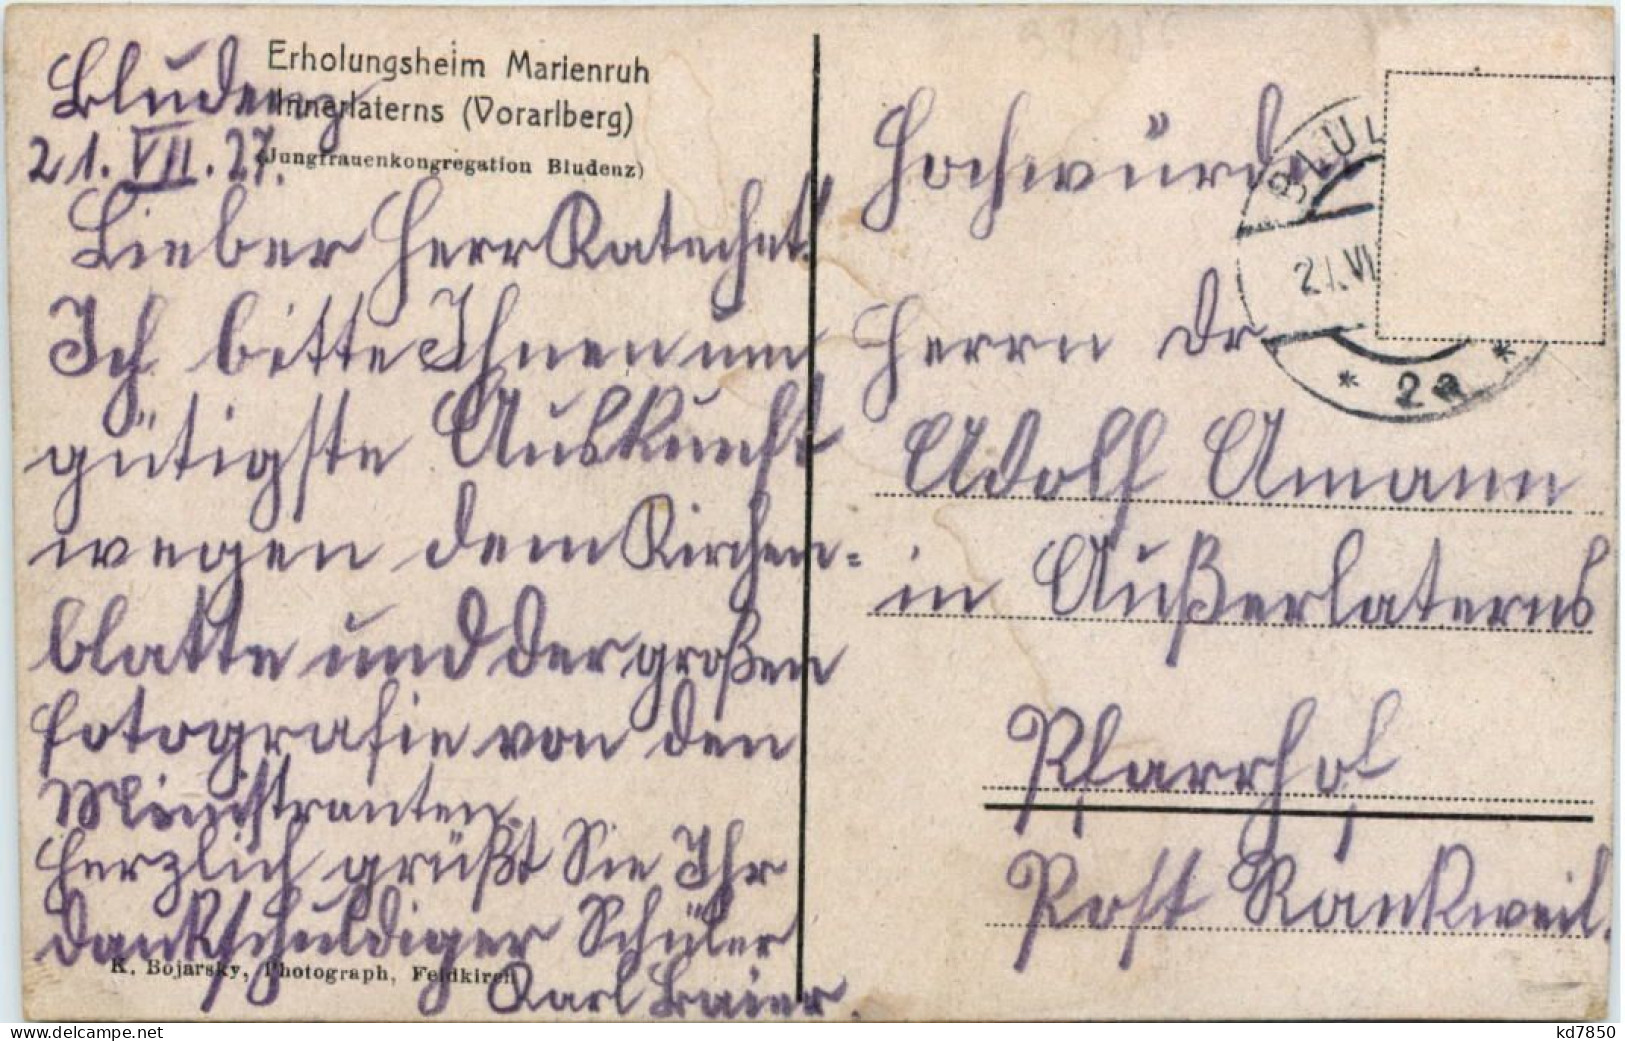 Erholungsheim Marienruh
Innerlaterns (Vorarlberg)
(Jungfrauenkongregation Bludenz)
Bludenz
21. VII. 27.
Lieber Herr Katechet.
Ich bitte Ihnen um
gütigste Auskunft
wegen dem Kirchen=
blatte und der großen
Fotografie von den
Ministranten.
Herzlich grüßt Sie Ihr
dankschuldiger Schüler
Karl Baier.
K. Bojarsky, Photograph, Feldkirch
Hochwürden
Herrn Dr
Adolf Amann
in Außerlaterns
Pfarrhof
Post Rankweil.
BLU
21.VI
* 2a *
kd7850